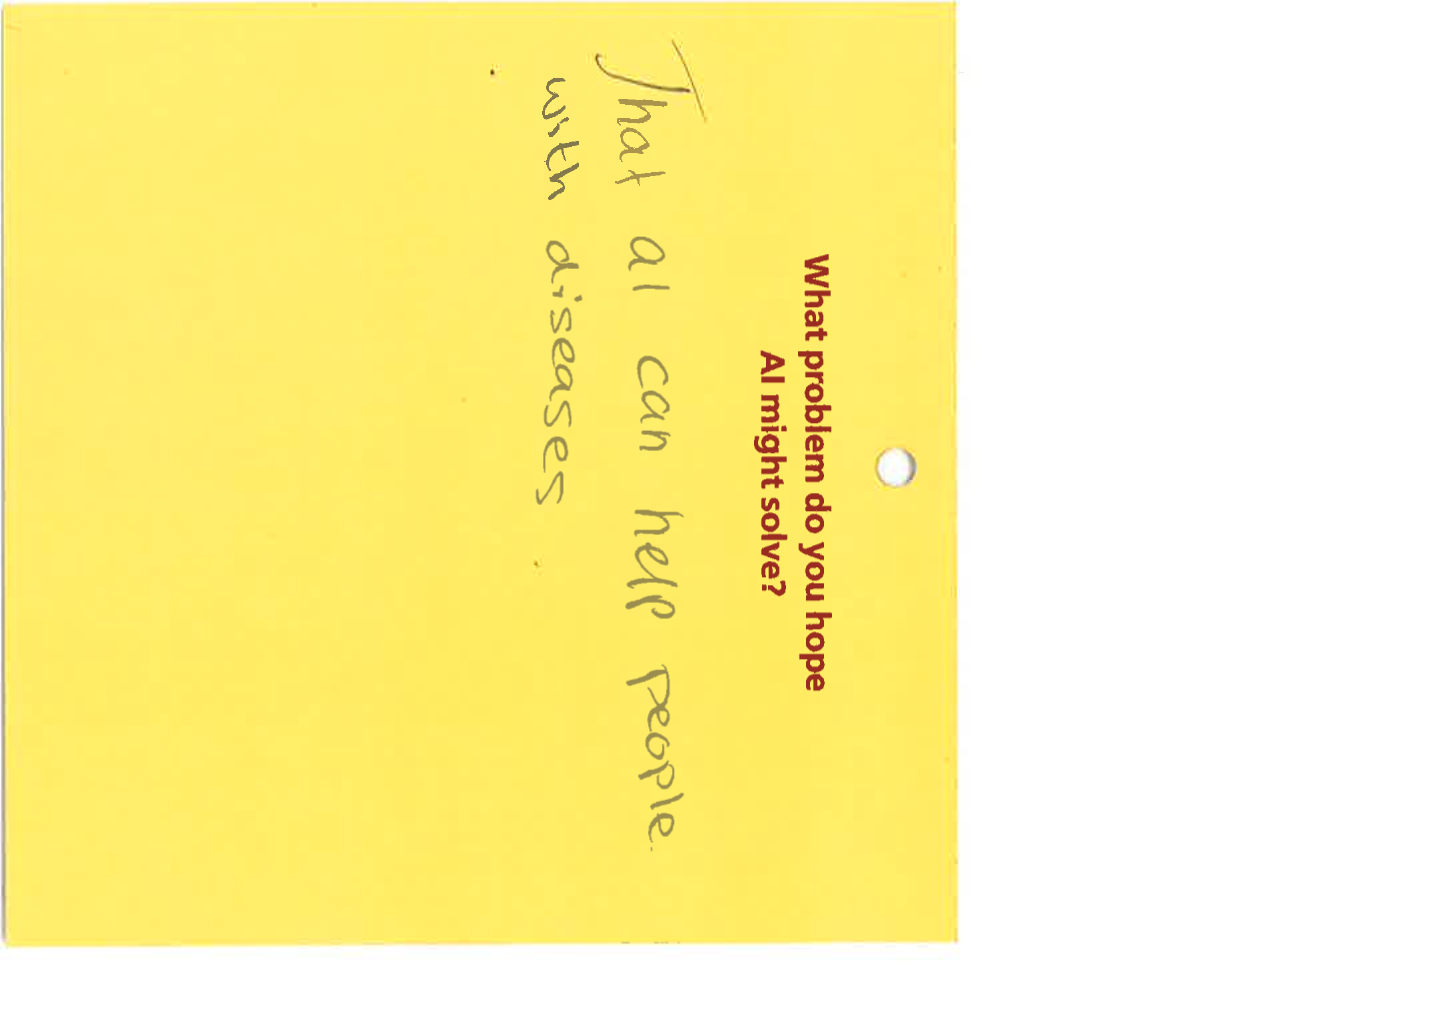 What problem do you hope
AI might solve?
That aI can help people
with diseases